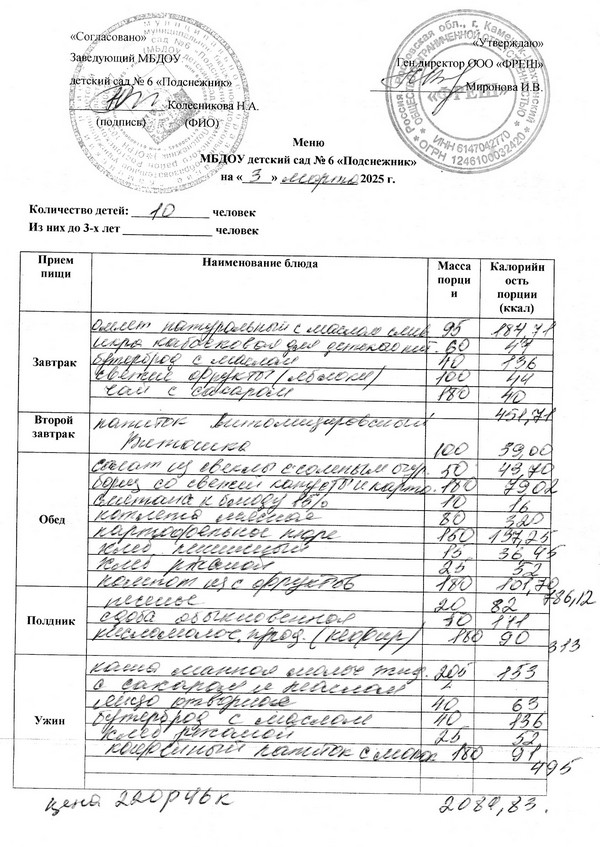 «Согласовано» «Утверждаю»
Заведующий МБДОУ Ген.директор ООО «ФРЕШ»
детский сад № 6 «Подснежник» Миронова И.В.
Колесникова Н.А.
(подпись) (ФИО)
«ФРЕШ»
ИНН 6147042770
ОГРН 1246100032420
Меню
МБДОУ детский сад № 6 «Подснежник»
на « 3 » марта 2025 г.
Количество детей: 10 человек
Из них до 3-х лет человек
Прием пищи Наименование блюда Масса порции Калорийность порции (ккал)
Завтрак
омлет натуральный с маслом слив. 95 187,71
икра кабачковая для детского пит. 60 44
бутерброд с маслом 40 136
свежие фрукты (яблоки) 100 44
чай с сахаром 180 40
451,71
Второй завтрак
напиток Витаминизированный
Витошка 100 39,00
Обед
салат из свеклы с соленым огур. 50 43,70
борщ со свежей капусты и карто. 180 79,02
сметана к блюду 15% 10 16
котлета мясная 80 320
картофельное пюре 150 137,25
хлеб пшеничный 15 36,45
хлеб ржаной 25 52
компот из с фруктов 180 101,70
786,12
Полдник
печенье 20 82
сдоба обыкновенная 50 141
кисломолоч. прод. (кефир) 180 90
313
Ужин
каша манная молоч жид. 205 153
с сахаром и маслом
яйцо отварное 40 63
бутерброд с маслом 40 136
хлеб ржаной 25 52
кофейный напиток с молок 180 91
495
цена 220р 46к 2084,83.